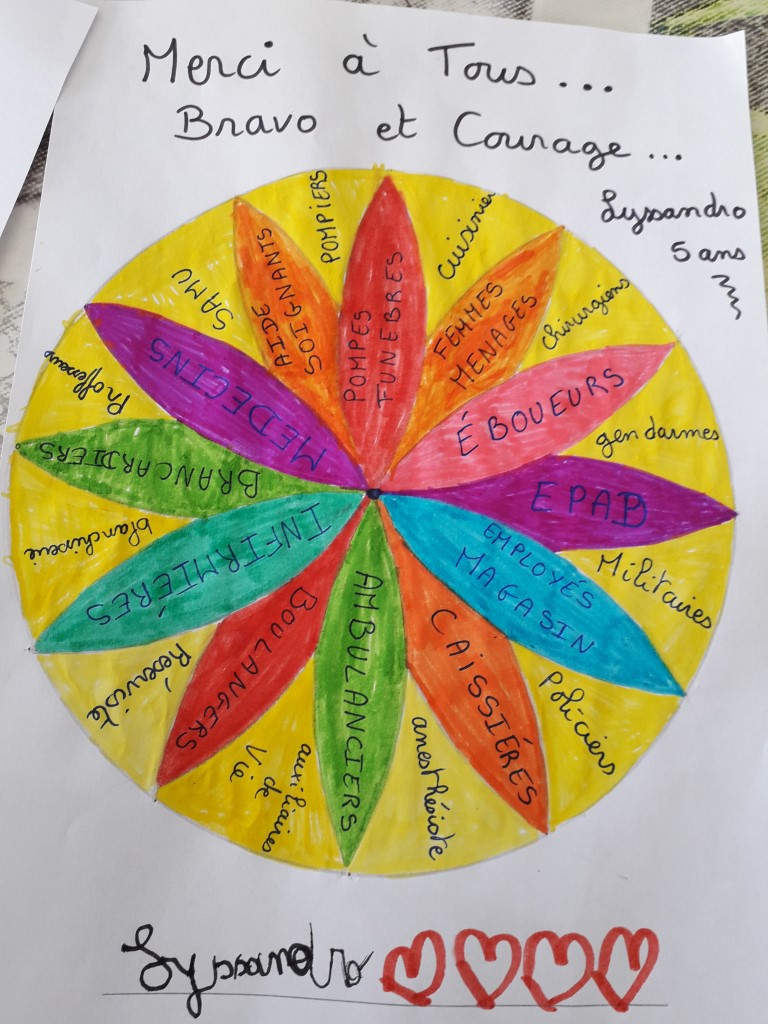 Merci à Tous...
Bravo et Courage...
Lyssandro
5 ans
POMPES
FUNEBRES
cuisinier
FEMMES
MENAGES
chirurgiens
ÉBOUEURS
gendarmes
EPAD
Militaires
EMPLOYÉS
MAGASIN
Policiers
CAISSIÉRES
anesthésiste
AMBULANCIERS
auxiliaires
de
Vie
BOULANGERS
Réserviste
INFIRMIÉRES
blanchisserie
BRANCARDIERS
Professeur
MEDECINS
SAMU
AIDE
SOIGNANTS
POMPIERS
Lyssandro